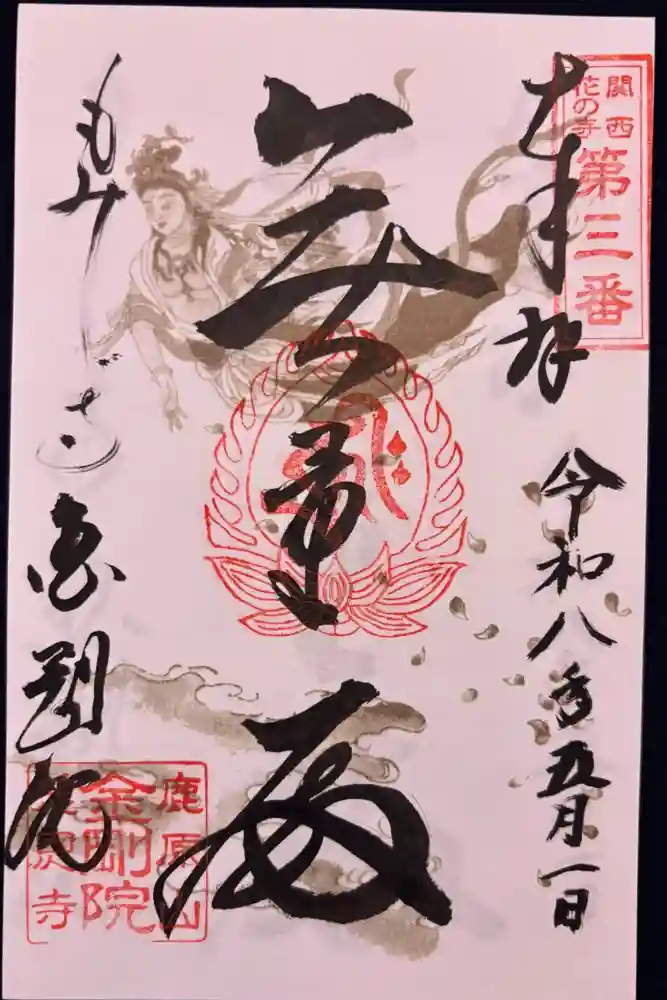 関西
花の寺
第三番
奉拝
令和八年五月一日
無量寿
もみじ寺
金剛院
鹿原山
金剛院
寺